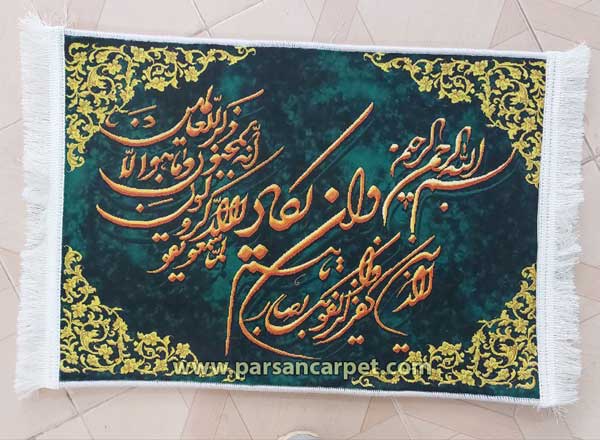 بسم الله الرحمن الرحیم
وان یکاد
الذین کفروا لیزلقونک بابصارهم
لما سمعوا الذکر و یقولون
انه لمجنون وما هو الا
ذکر للعالمین
www.parsancarpet.com